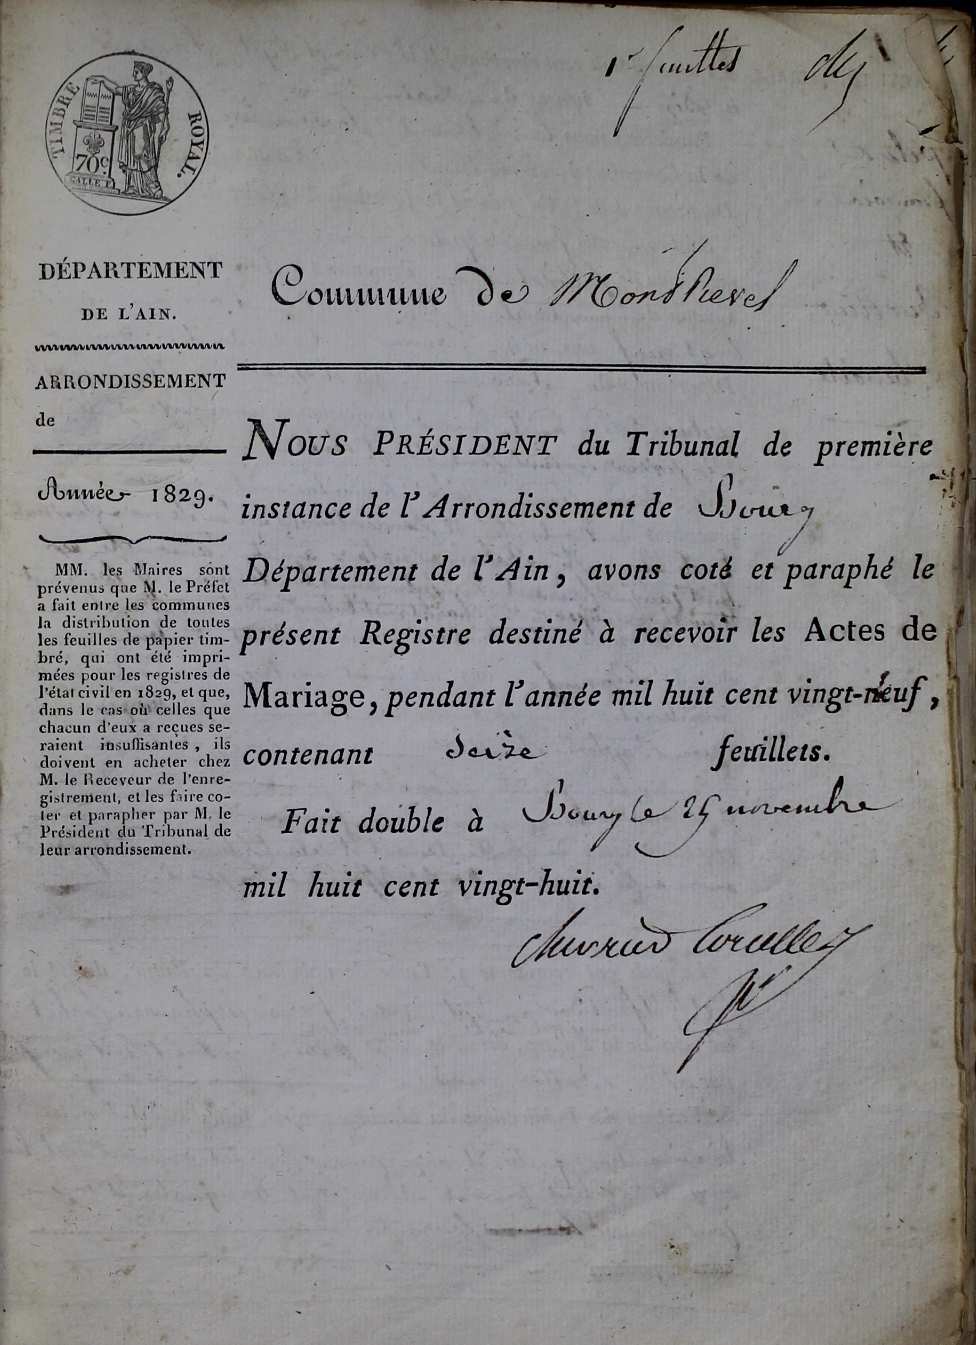 1er feuillet
TIMBRE ROYAL.
70c
DÉPARTEMENT
DE L'AIN.
ARRONDISSEMENT
de
Année 1829.
MM. les Maires sont
prévenus que M. le Préfet
a fait entre les communes
la distribution de toutes
les feuilles de papier tim-
bré, qui ont été impri-
mées pour les registres de
l'état civil en 1829, et que,
dans le cas où celles que
chacun d'eux a reçues se-
raient insuffisantes, ils
doivent en acheter chez
M. le Receveur de l'enre-
gistrement, et les faire co-
ter et parapher par M. le
Président du Tribunal de
leur arrondissement.
Commune de Montrevel
NOUS PRÉSIDENT du Tribunal de première
instance de l'Arrondissement de Bourg
Département de l'Ain, avons coté et paraphé le
présent Registre destiné à recevoir les Actes de
Mariage, pendant l'année mil huit cent vingt-neuf,
contenant Seize feuillets.
Fait double à Bourg le 25 novembre
mil huit cent vingt-huit.